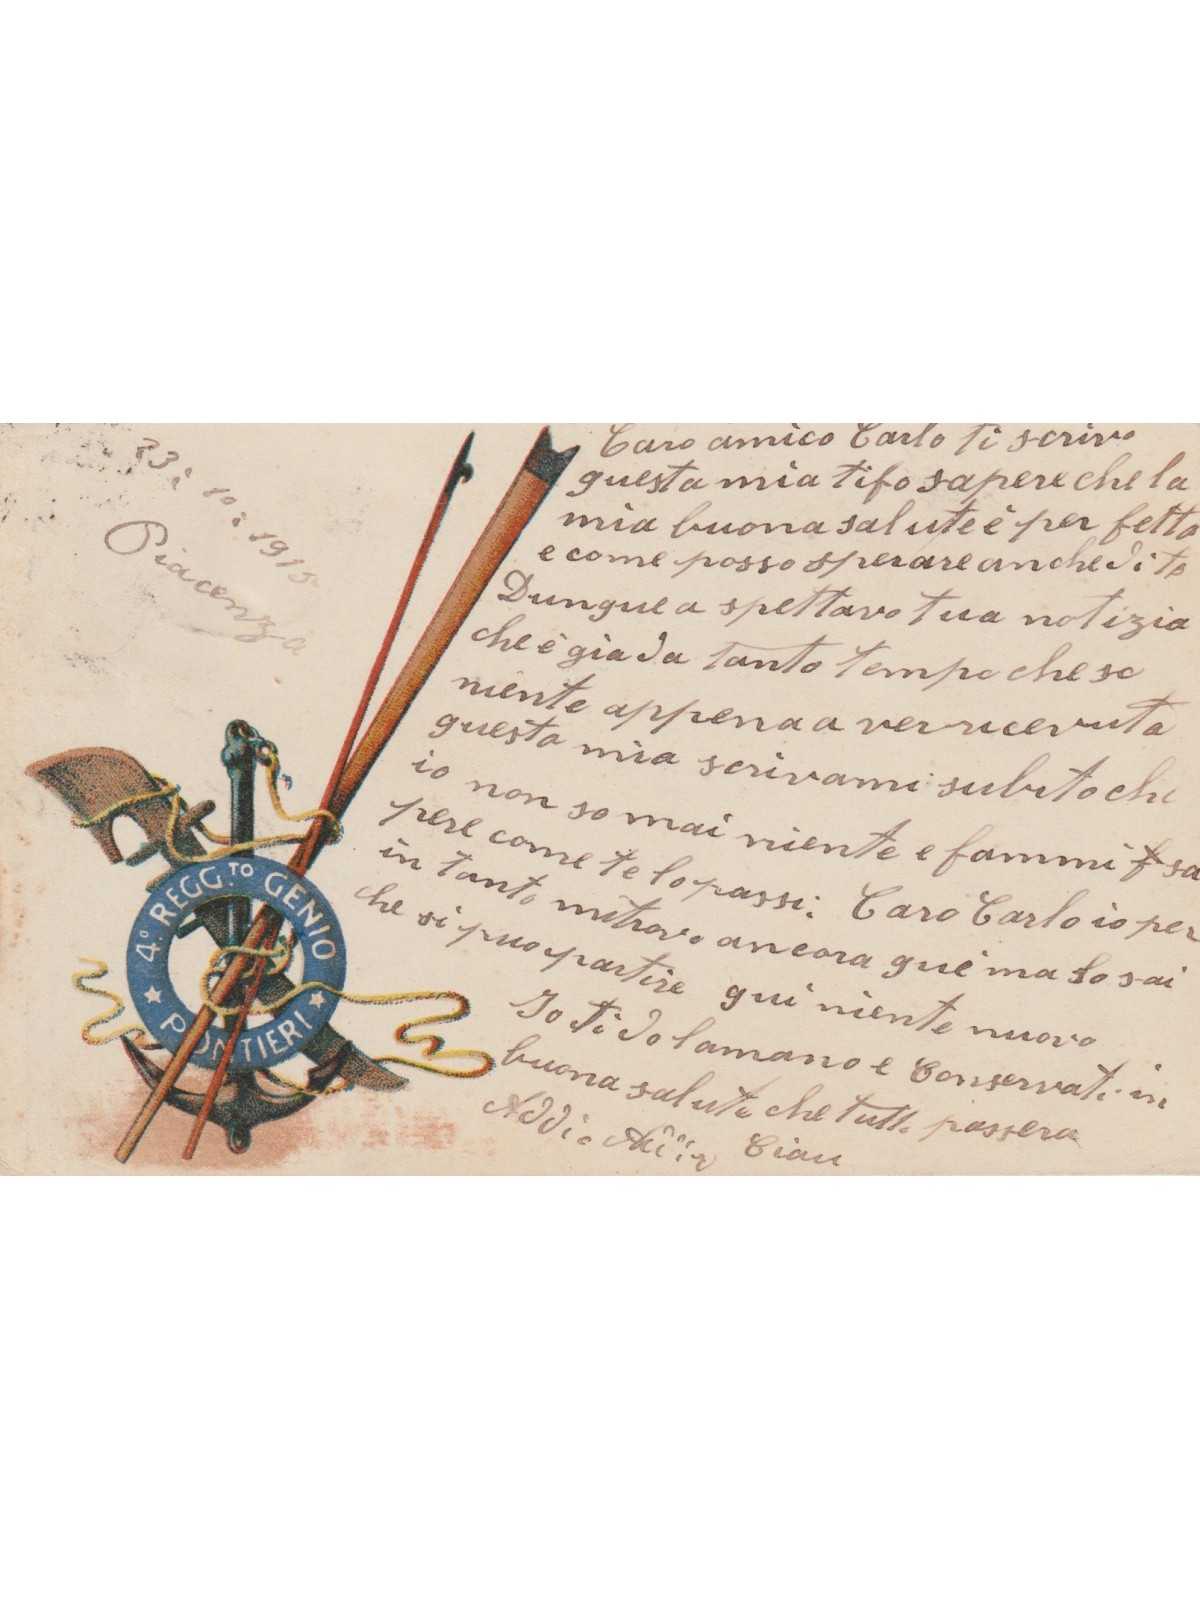 23: 10: 1915
Piacenza
Caro amico Carlo ti scrivo
questa mia ti fo sapere che la
mia buona salute è per fetta
e come posso sperare anche di te
Dunque a spettavo tua notizia
che è gia da tanto tempo che so
niente appena a ver ricevuta
questa mia scrivami subito che
io non so mai niente e fammi sa
pere come te lo passi: Caro Carlo io per
in tanto mi trovo ancora qui ma lo sai
che si puo partire qui niente nuovo
Io ti do la mano e Conservati in
buona salute che tutto passera
Addio Ciau
4º REGG.TO GENIO
PONTIERI